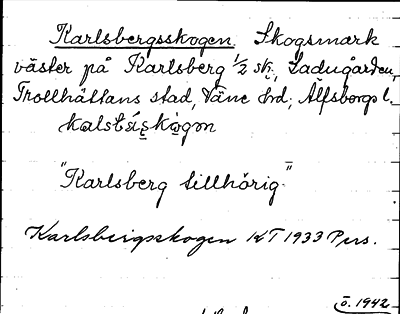 Karlsbergsskogen. Skogsmark
väster på Karlsberg 1/2 sk., Ladugården,
Trollhättans stad, Väne hd; Älfsborgs l.
"Karlsberg tillhörig"
Karlsbergsskogen KT 1933 Pers.
ö. 1942